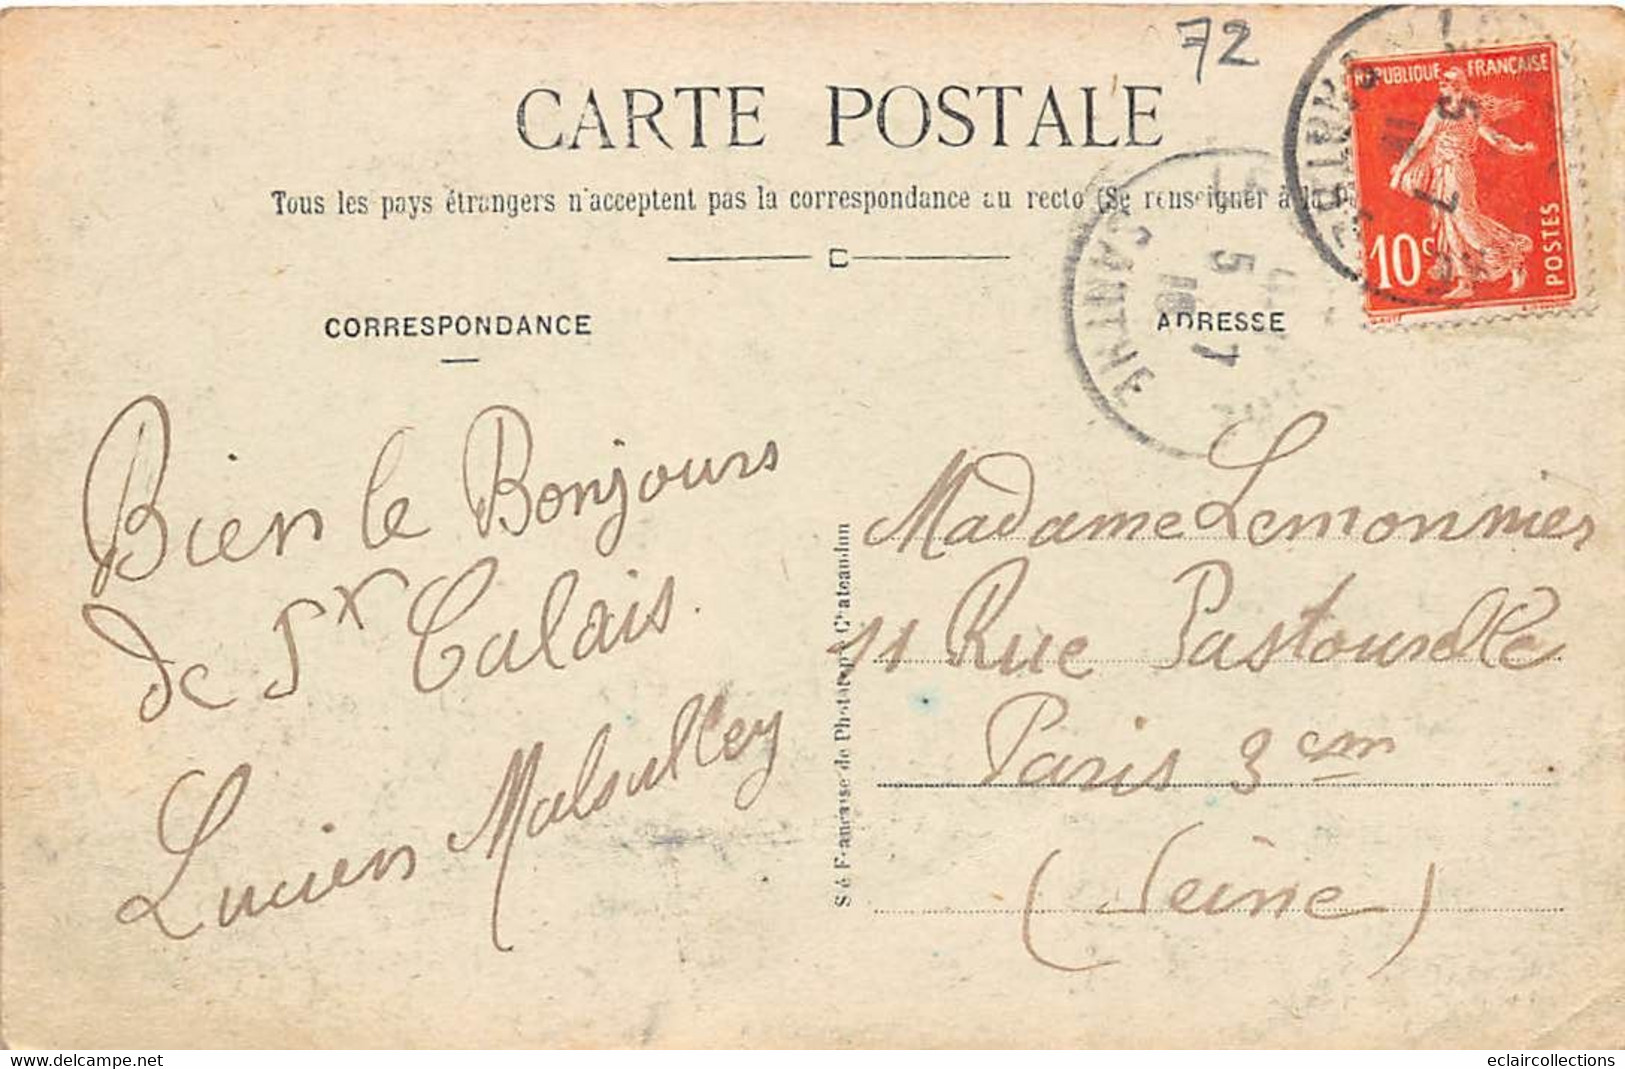 72
CARTE POSTALE
Tous les pays étrangers n'acceptent pas la correspondance au recto (Se renseigner à la
CORRESPONDANCE
ADRESSE
RÉPUBLIQUE FRANÇAISE
10c
POSTES
SARTHE
5
7
SARTHE
5 7
16
Bien le Bonjours
de St Calais.
Lucien
Madame Lemonnier
11 Rue Pastourelle
Paris 3em
(Seine)
Sté Française de Phototypie Chateaudun
Delcampe.net
eclaircollections